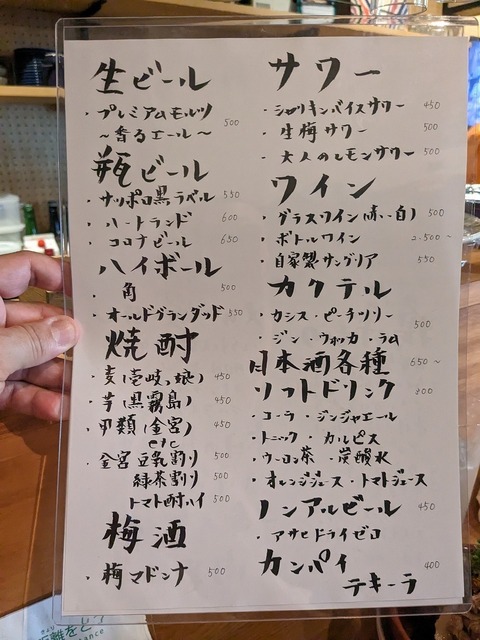 生ビール
・プレミアムモルツ
～香るエール～ 500
瓶ビール
・サッポロ黒ラベル 550
・ハートランド 600
・コロナビール 650
ハイボール
・角 500
・オールドグランダッド 550
焼酎
・麦(壱岐っ娘) 450
・芋(黒霧島) 450
・甲類(金宮) 450
etc
・金宮 豆乳割り 500
緑茶割り 500
トマト酎ハイ 500
梅酒
・梅マドンナ 500
サワー
・シャリキンバイスサワー 450
・生梅サワー 500
・大人のレモンサワー 500
ワイン
・グラスワイン(赤い白) 500
・ボトルワイン 2.500～
・自家製サングリア 550
カクテル
・カシス・ピーチツリー
・ジン・ウォッカ・ラム 500
日本酒各種 650～
ソフトドリンク 300
・コーラ・ジンジャエール
・トニック・カルピス
・ウーロン茶・炭酸水
・オレンジジュース・トマトジュース
ノンアルビール 450
・アサヒドライゼロ
カンパイ 400
テキーラ